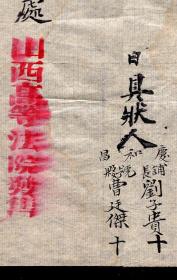 日具狀人
慶長劉子貴十
和號昌曹廷傑十
山西高等法院
處